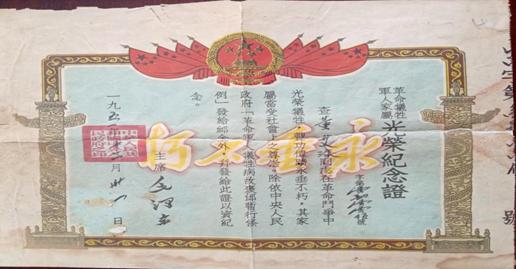 字第 號
革命犧牲
軍人家屬
光榮紀念證
查 同志在革命鬥爭中
光榮犧牲,豐功偉績永垂不朽,其家
屬當受社會上之尊崇。除依中央人民
政府「革命軍人犧牲病故褒卹暫行條
例」發給卹金外並發給此證以資紀
念。
主席 毛澤東
一九五 年 月 日
永垂不朽